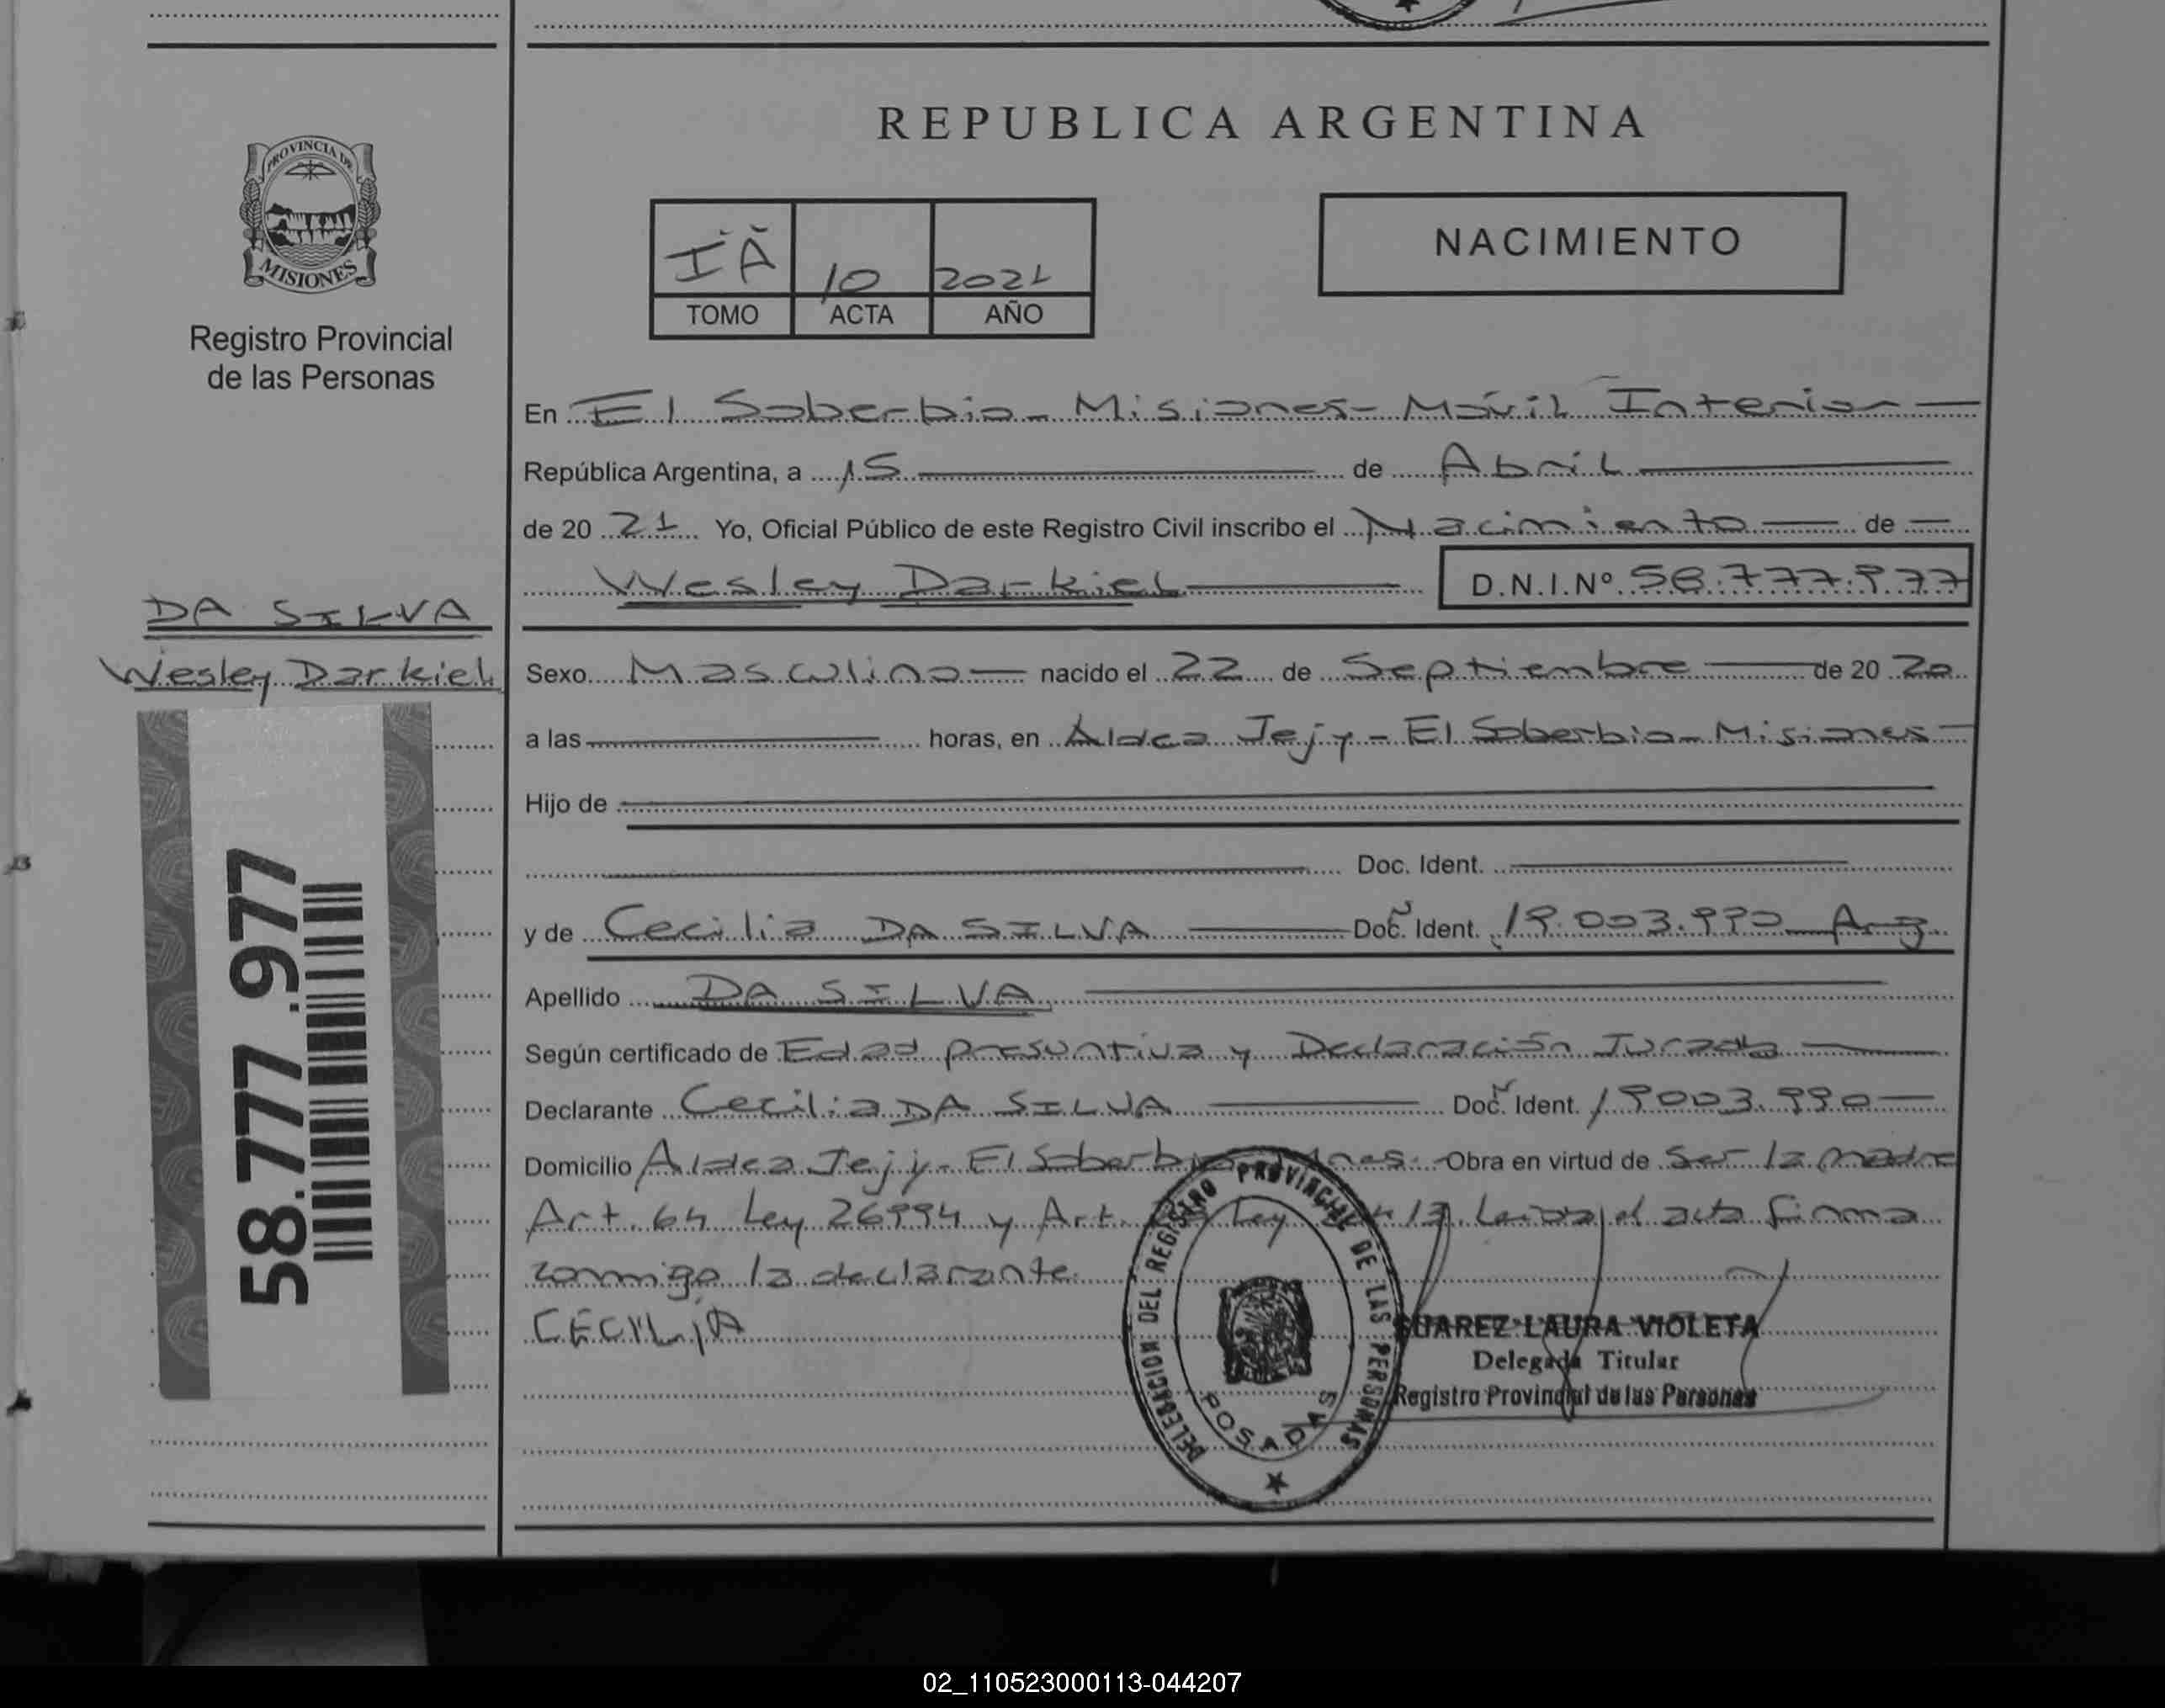 REPUBLICA ARGENTINA
PROVINCIA DE
MISIONES
Registro Provincial
de las Personas
DA SILVA
Wesley Darkiel
58.777.977
IĂ 10 2021
TOMO ACTA AÑO
NACIMIENTO
En El Soberbio - Misiones - Móvil Interior
República Argentina, a 15 de Abril
de 20 21 Yo, Oficial Público de este Registro Civil inscribo el Nacimiento de
Wesley Darkiel D.N.I.Nº 58.777.977
Sexo Masculino nacido el 22 de Septiembre de 20 20
a las horas, en Aldea Jejy - El Soberbio - Misiones
Hijo de
Doc. Ident.
y de Cecilia DA SILVA Doc. Ident. 19.003.990 Arg
Apellido DA SILVA
Según certificado de Edad presuntiva y Declaración Jurada
Declarante Cecilia DA SILVA Doc. Ident. 19003.990
Domicilio Aldea Jejy - El Soberbio Obra en virtud de Ser la madre
Art. 64 Ley 26994 y Art. Ley Leida el acta firma
conmigo la declarante
CECILIA
DELEGACION DEL REGISTRO PROVINCIAL DE LAS PERSONAS
POSADAS
SUAREZ LAURA VIOLETA
Delegada Titular
Registro Provincial de las Personas
02_110523000113-044207